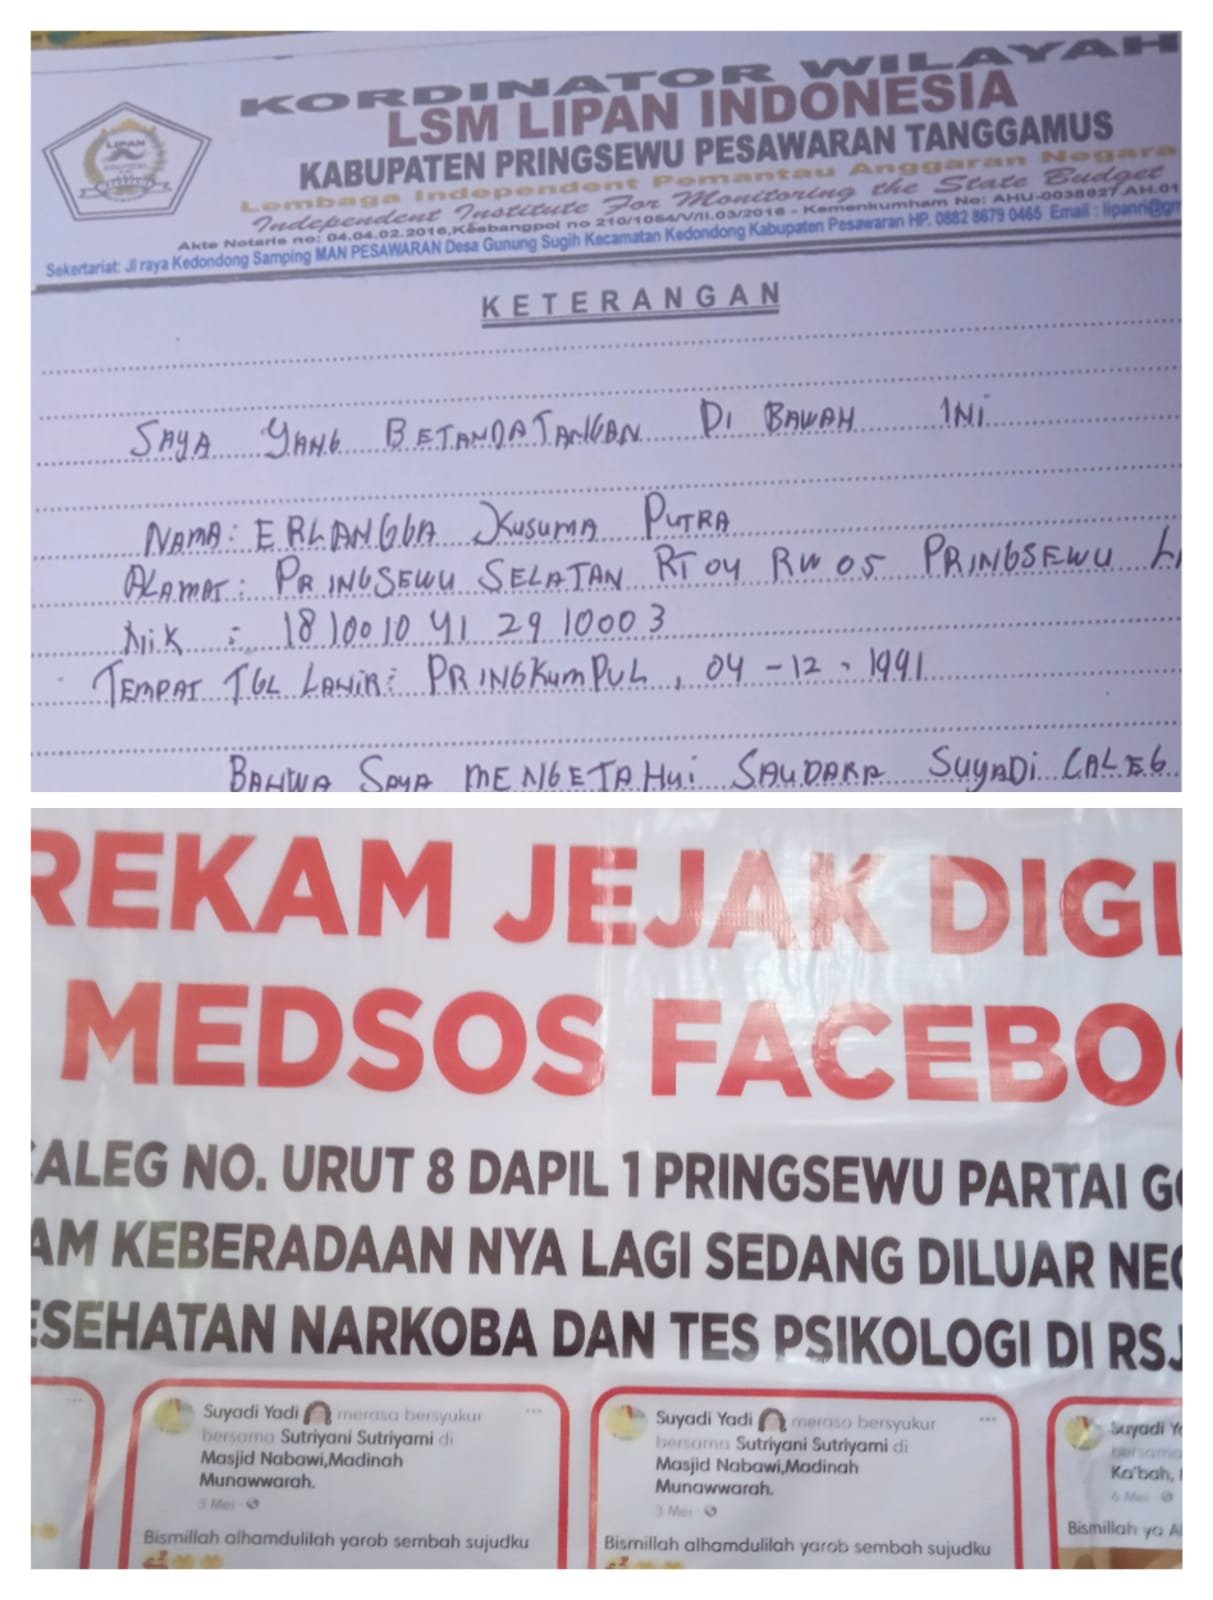 KORDINATOR WILAYAH
LSM LIPAN INDONESIA
KABUPATEN PRINGSEWU PESAWARAN TANGGAMUS
Lembaga Independent Pemantau Anggaran Negara
Independent Institute For Monitoring the State Budget
Akte Notaris no: 04.04.02.2016,Kesbangpol no 210/1054/V/II.03/2016 - Kemenkumham No: AHU-0038827.AH.01
Sekertariat: Jl raya Kedondong Samping MAN PESAWARAN Desa Gunung Sugih Kecamatan Kedondong Kabupaten Pesawaran HP. 0882 8679 0465 Email : lipanri@gm
LIPAN
KETERANGAN
SAYA YANG BETANDATANGAN DI BAWAH INI
NAMA: ERLANGGA KUSUMA PUTRA
ALAMAT: PRINGSEWU SELATAN RT 04 RW 05 PRINGSEWU
NIK : 18 10010 41 29 10003
TEMPAT TGL LAHIR: PRINGKUMPUL, 04 - 12 - 1991
BAHWA SAYA MENGETAHUI SAUDARA SUYADI CALEG
REKAM JEJAK DIGI
MEDSOS FACEBO
CALEG NO. URUT 8 DAPIL 1 PRINGSEWU PARTAI GO
AM KEBERADAAN NYA LAGI SEDANG DILUAR NEG
ESEHATAN NARKOBA DAN TES PSIKOLOGI DI RSJ
Suyadi Yadi merasa bersyukur
bersama Sutriyani Sutriyami di
Masjid Nabawi,Madinah
Munawwarah.
3 Mei
Bismillah alhamdulilah yarob sembah sujudku
Suyadi Yadi merasa bersyukur
bersama Sutriyani Sutriyami di
Masjid Nabawi,Madinah
Munawwarah.
3 Mei
Bismillah alhamdulilah yarob sembah sujudku
Suyadi Y
bersama
Ka'bah,
6 Mei
Bismillah ya A